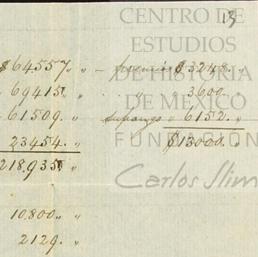 CENTRO DE
ESTUDIOS
DE HISTORIA
DE MÉXICO
FUNDACIÓN
Carlos Slim
13
$64557. " — $3248. "
69415. " " 3600. "
61509. " 6152. "
23454. " $13000. "
218935 "
10.800. "
2129. "